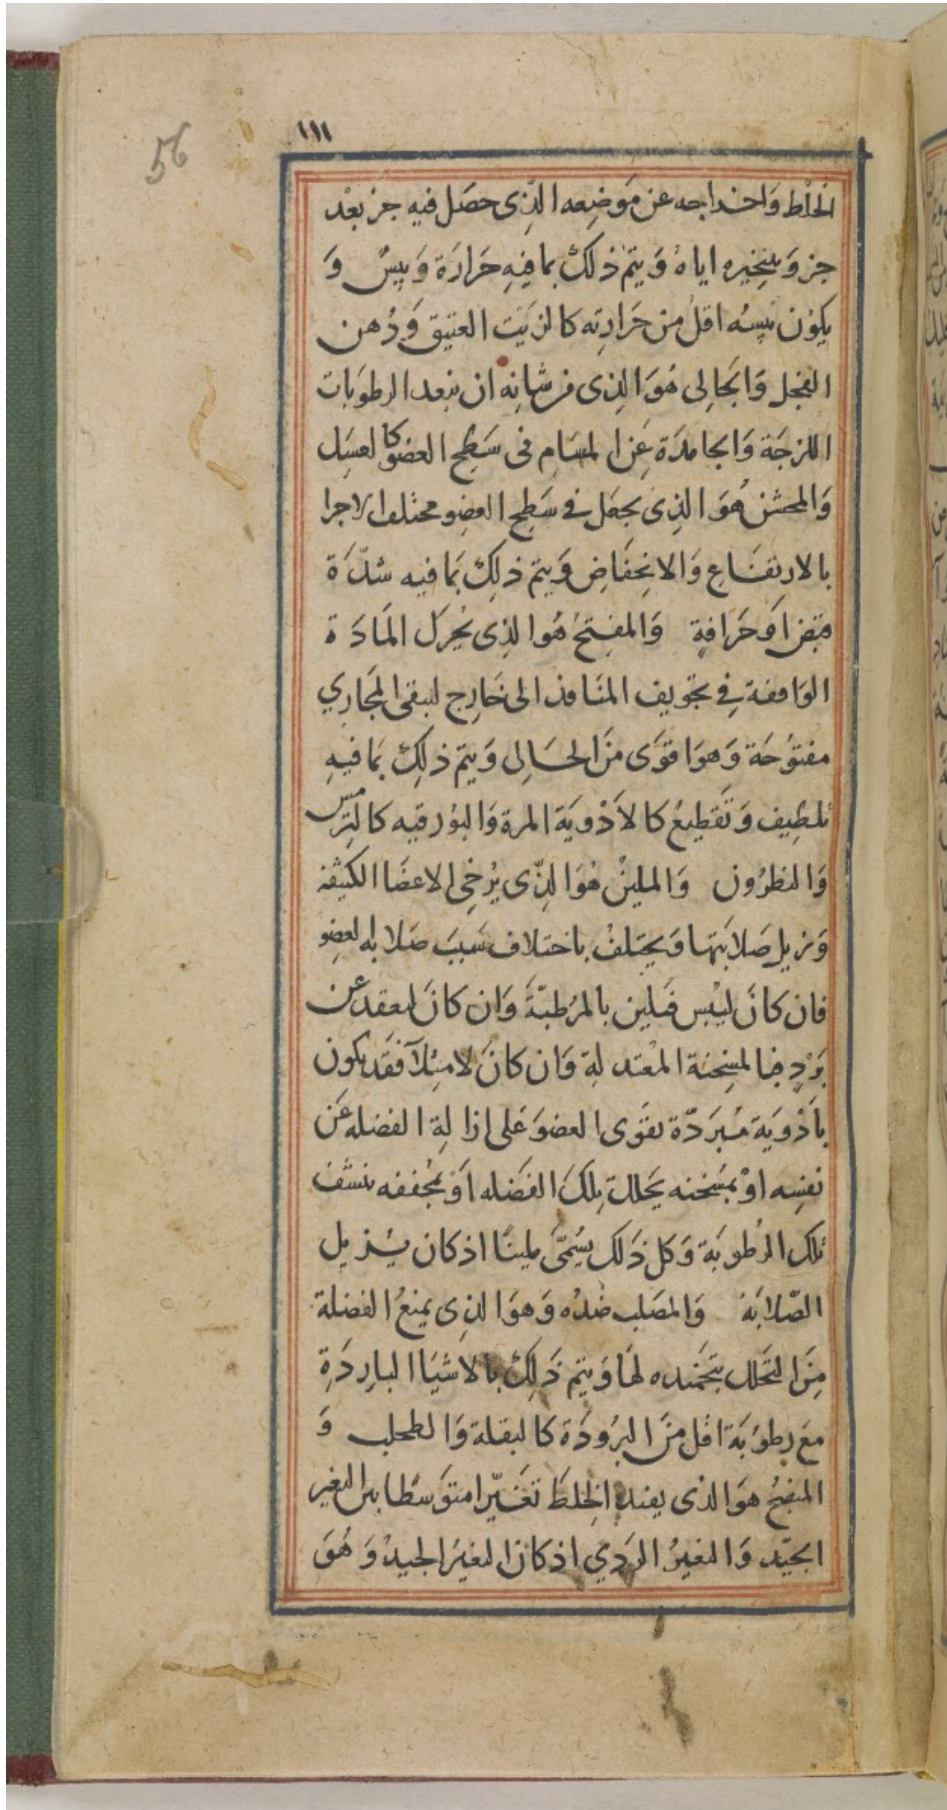 ١١١
56
الخلط واخراجه عن موضعه الذى حصل فيه جز بعد
جز وبتبخيره اياه ويتم ذلك بما فيه حرارة ويبس و
يكون يبسه اقل من حرارته كالزيت العتيق ودهن
الفجل والجالى هو الذى من شانه ان يبعد الرطوبات
اللزجة والجامدة عن المسام فى سطح العضو كالعسل
والمخشن هو الذى يجعل فى سطح العضو مختلف الاجزا
بالارتفاع والانخفاض ويتم ذلك بما فيه شدّة
قبض او حرافة والمفتح هو الذى يحرك المادة
الواقفة فى تجويف المنافذ الى خارج لتبقى المجاري
مفتوحة وهو اقوى من الجالى ويتم ذلك بما فيه
تلطيف وتقطيع كالادوية المرة والبورقيه كالترمس
والنطرون والملين هو الذى يرخى الاعضا الكثيفة
ويزيل صلابتها ويختلف باختلاف سبب صلابه العضو
فان كان ليبس فيلين بالمرطبّة وان كان لعقد عن
برد فبالمسخنة المعتدلة وان كان لامتلآ فقد يكون
بادوية مبردّة تقوى العضو على ازالة الفضله عن
نفسه او بمسخنه يحلل تلك الفضله او بمجففه ينشف
تلك الرطوبة وكل ذلك يسمّى ملينا اذ كان يزيل
الصّلابة والمصلب ضده وهو الذى يمنع الفضلة
من التحلل بتجميده لها ويتم ذلك بالاشيا الباردة
مع رطوبة اقل من البرودة كالبقلة والطحلب و
المنضج هو الذى يفيد الخلط تغيّرا متوسطا بين التغير
الجيّد والتغير الردي اذ كان التغير الجيد وهو